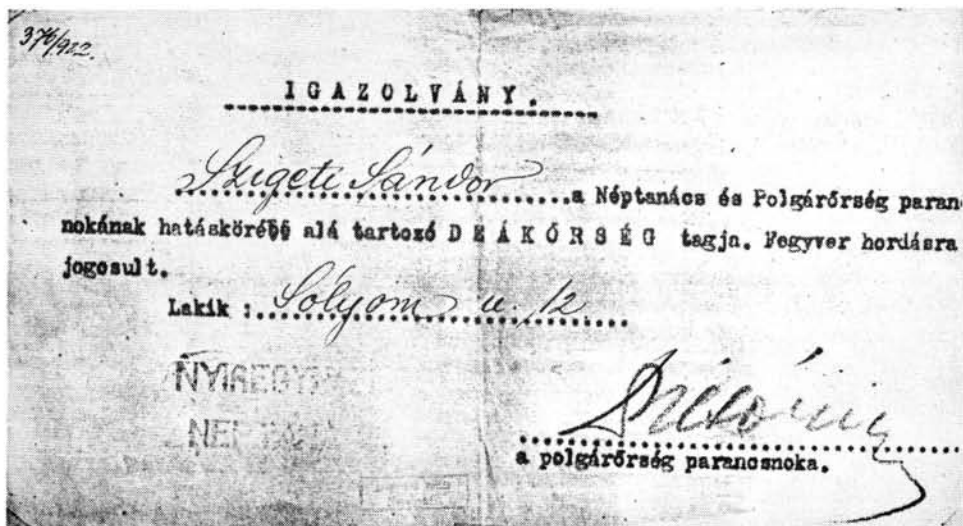 376/922.
IGAZOLVÁNY.
Szigeti Sándor a Néptanács és Polgárőrség paran
nokának hatáskörébe alá tartozó DEÁKŐRSÉG tagja. Fegyver hordásra
jogosult.
Lakik : Sólyom u. 12
a polgárőrség parancsnoka.